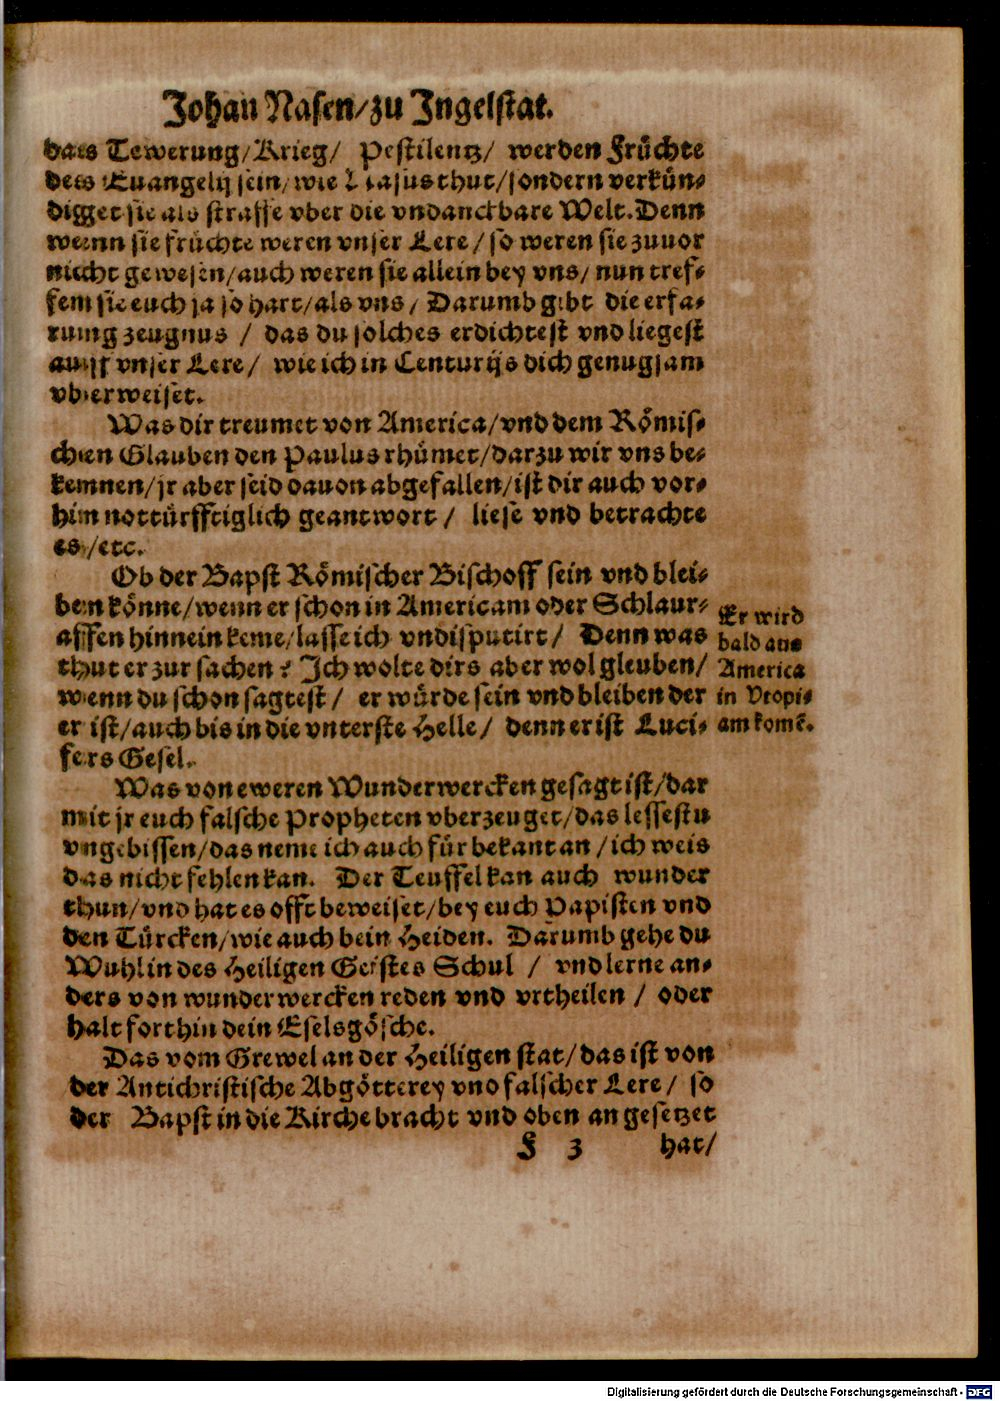 Johan Nasen/zu Ingelstat.
das Tewerung/Krieg/ Pestilentz/ werden Früchte
des Euangelij sein/wie Nasus thut/sondern verkün-
digget sie als straffe vber die vndanckbare Welt. Denn
wenn sie früchte weren vnser Lere/so weren sie zuuor
nicht gewesen/auch weren sie allein bey vns/nun tref-
fem sie euch ja so hart/als vns/ Darumb gibt die erfa-
rung zeugnus / das du solches erdichtest vnd liegest
auff vnser Lere/ wie ich in Centurijs dich genugsam
vberweiset.
Was dir treumet von America/vnd dem Römis-
chen Glauben den Paulus rhümet/darzu wir vns be-
kennen/jr aber seid dauon abgefallen/ist dir auch vor-
hin nottürfftiglich geantwort / liese vnd betrachte
es/etc.
Ob der Bapst Römischer Bischoff sein vnd blei-
ben könne/wenn er schon in Americam oder Schlaur-
affen hinnein keme/lasse ich vndisputirt/ Denn was
thut er zur sachen? Ich wolte dirs aber wol gleuben/
wenn du schon sagtest/ er würde sein vnd bleiben der
er ist/auch bis in die vnterste Helle/ denn er ist Luci-
fers Gesel.
Er wird
bald aus
America
in Vtopi-
am komē.
Was von eweren Wunderwercken gesagt ist/dar
mit jr euch falsche Propheten vberzeuget/das lessestu
vngebissen/das neme ich auch für bekant an/ich weis
das nicht fehlen kan. Der Teuffel kan auch wunder
thun/vnd hat es offt beweiset/bey euch Papisten vnd
den Türcken/wie auch bein Heiden. Darumb gehe du
Wuhl in des Heiligen Geistes Schul / vnd lerne an-
ders von wunderwercken reden vnd vrtheilen / oder
halt forthin dein Eselsgösche.
Das vom Grewel an der Heiligen stat/das ist von
der Antichristische Abgötterey vnd falscher Lere/ so
der Bapst in die Kirche bracht vnd oben an gesetzet
F 3 hat/
Digitalisierung gefördert durch die Deutsche Forschungsgemeinschaft - DFG